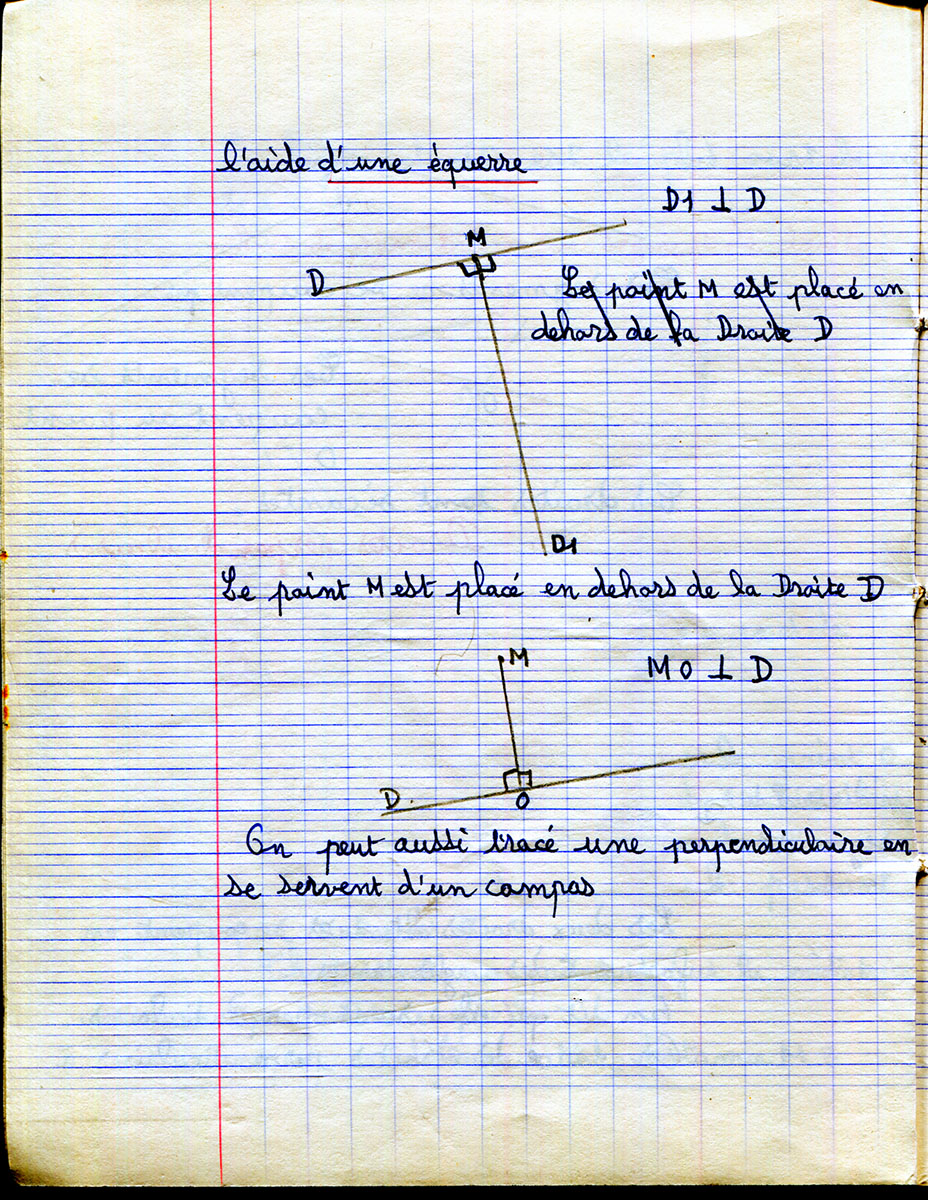 l'aide d'une équerre
D1 ⊥ D
M
D
Le point M est placé en
dehors de la Droite D
D1
Le point M est placé en dehors de la Droite D
M
M O ⊥ D
D.
O
On peut aussi tracé une perpendiculaire en
se servent d'un compas